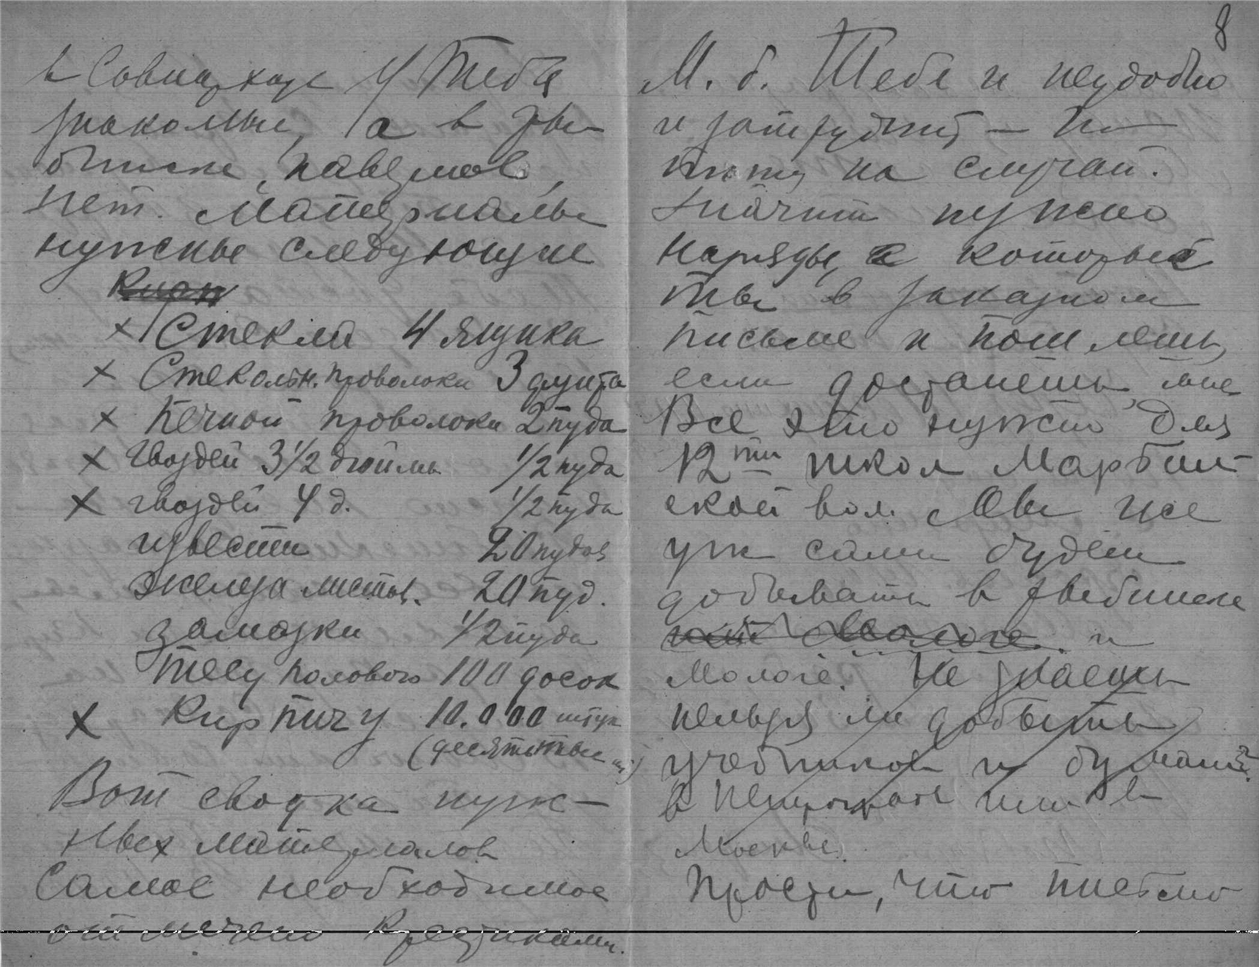 в Совнархозе у Тебя
знакомые, а в Ры-
бинске, навезлов,
нет. Материалы
нужны следующие
Кирп
× Стекла 4 ящика
× Стекольн. проволоки 3 фунта
× Печной проволоки 2 пуда
× Гвоздей 3 1/2 дюйма 1/2 пуда
× гвоздей 4 д. 1/2 пуда
извести 20 пудов
железа листов. 20 пуд.
замазки 1/2 пуда
Тесу полового 100 досок
× Кирпичу 10.000 штук
(десять тысяч)
Вот сводка нуж-
ных материалов
Самое необходимое
отмечено крестиками.
8
М. б. Тебе и неудобно
и затруднит — Пи-
шу на случай.
Значит нужно
наряды, а которые
Ты в заказном
письме и пошлешь,
если достанешь, мне
Все это нужно для
12ти школ Марьин-
ской вол. Мы же
уж сами будем
добывать в Рыбинске
и
Мологе. Не знаешь
нельзя ли добыть
учебников и бумаги?
в Петрограде или в
Москве.
Прости, что письмо